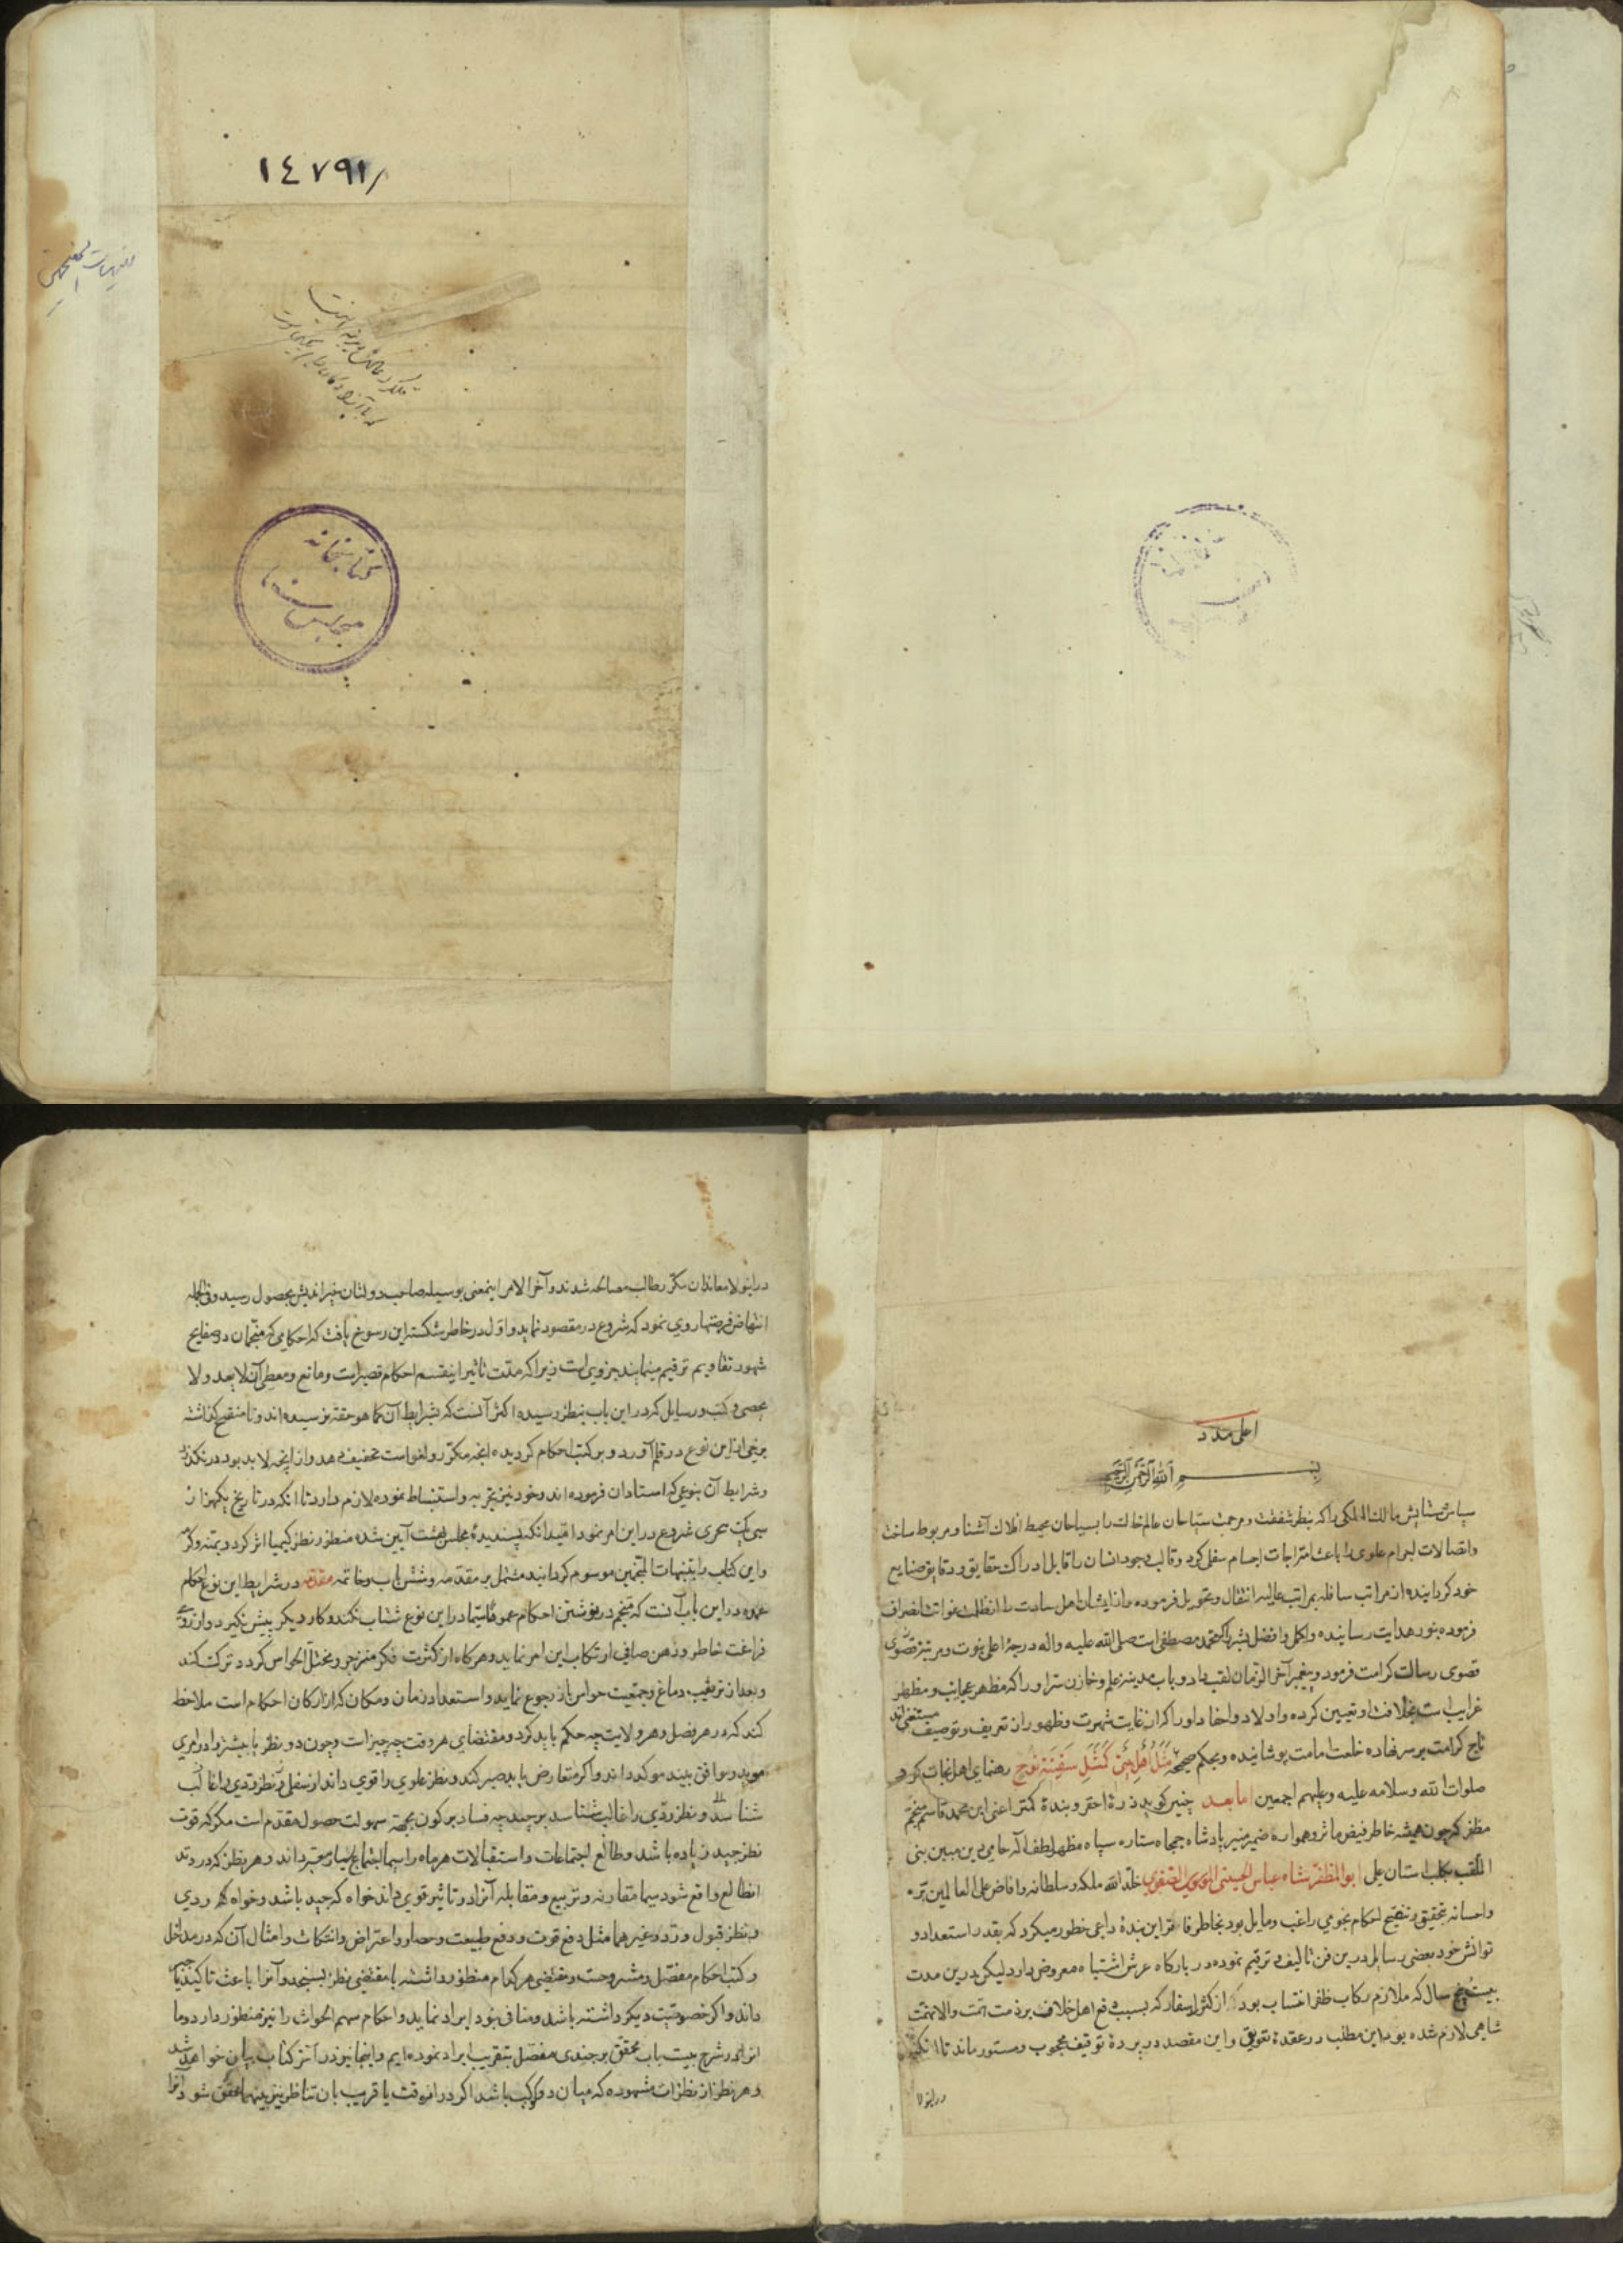 ١٤٧٩١
کتابخانه
مجلس سنا
اعلی مدد
بسم الله الرحمن الرحیم
سپاس و ستایش مالک الملکی را که بنظر شفقت و مرحمت سیاحان عالم خاک را بسیاحان محیط افلاک آشنا و مربوط ساخت
واتصالات اجرام علوی را باعث امتزاجات اجسام سفلی کرد و قالب وجود انسان را قابل ادراک حقایق و دقایق صنایع
خود کردانیده از مراتب سافله بمراتب عالیه انتقال و تحویل فرموده و از ایشان اهل سعادت را از ظلمت غوایت انصراف
فرموده بنور هدایت رسانیده واکمل وافضل بشر را که محمد مصطفی است صلی الله علیه واله درجهٔ اعلی نبوت و مرتبهٔ قصوی
قصوی رسالت کرامت فرمود و پیغمبر آخر الزمان لقب داد و باب مدینه علم و خازن سر او را که مظهر عجایب و مظهر
غرایب است بخلافت او تعیین کرده و اولاد و احفاد او را که از غایت شهرت و ظهور از تعریف و توصیف مستغنی اند
تاج کرامت بر سر نهاده خلعت امامت پوشانیده و بحکم صحیح مَثَلُ اَهْلِ بَیْتی کَمَثَلِ سَفینَةِ نوح رهنمای اهل نجات کرد
صلوات الله وسلامه علیه وعلیهم اجمعین اما بعد چنین کوید ذرهٔ احقر و بندهٔ کمتر اعنی ابن محمد قاسم منجم
مظفر که چون همیشه خاطر فیض مآثر و همواره ضمیر منیر پادشاه جمجاه ستاره سپاه مظهر لطف اله حامی دین مبین نبی
الملقب بکلب استان علی ابو المظفر شاه عباس الحسینی الموسوی الصفوی خلد الله ملکه وسلطانه وافاض علی العالمین بره
واحسانه بتحقیق و تنقیح احکام نجومی راغب و مایل بود بخاطر فاتر این بندهٔ داعی خطور میکرد که بقدر استعداد و
توانش خود بعضی رسایل درین فن تالیف و ترقیم نموده در بارکاه عرش اشتباه معروض دارد لیکن درین مدت
بیست و پنج سال که ملازم رکاب ظفر انتساب بود از کثرت اسفار که بسبب دفع اهل خلاف بر ذمت همت والانهمت
شاهی لازم شده بود این مطلب در عقدهٔ تعویق و این مقصد در پردهٔ توقیف محجوب و مستور ماند تا آنکه
در اینولا
در اینولا معاندان مکرر طالب مصالحه شدند و آخر الامر اینمعنی بوسیله صاحب دولتان خیر اندیش بحصول رسید و فی الجمله
انتهاض فرصتها روی نمود که شروع در مقصود نماید و اول در خاطر شکسته این رسوخ یافت که احکامی که منجمان در صفایح
شهور تقاویم ترقیم مینمایند جزوی است زیرا که مدت تاثیر اینقسم احکام قصیر است و مانع و معطی آن لا یعد ولا
یحصی و کتب و رسایل که در این باب بنظر رسیده اکثر آنست که بشرایط آن کما هو حقه نرسیده اند و نا منقح کذاشته
برخی از این نوع در قلم آورد و بر کتب احکام کردیده انچه مکرر و لغو است تخفیف دهد و از انچه لا بد بود در نکذرد
و شرایط آن بنوعی که استادان فرموده اند و خود نیز بتجربه و استنباط نموده لازم دارد تا آنکه در تاریخ یکهزار
سی یک هجری شروع در این امر نمود امید انکه پسندیدهٔ مجلس بهشت آیین شده منظور نظر کیمیا اثر کردد بمنه و کرمه
و این کتاب را بتنبیهات المنجمین موسوم کردانید مشتمل بر مقدمه و شش باب و خاتمه مقدمه در شرایط این نوع احکام
عمده در این باب آنست که منجم در نوشتن احکام عموما لاسیما در این نوع شتاب نکند و کار دیکر پیش نکیرد و از روی
فراغت خاطر و ذهن صافی ارتکاب این امر نماید و هرکاه از کثرت فکر منزجر و مختل الحواس کردد ترک کند
و بعد از ترغیب دماغ و جمعیت حواس باز رجوع نماید و استعداد زمان و مکان که از ارکان احکام است ملاحظه
کند که در هر فصل و هر ولایت چه حکم باید کرد و مقتضای هر وقت چه چیز است و چون دو نظر یا بیشتر در امری
موید و موافق بیند موکد داند و اکر متعارض یابد صبر کند و نظر علوی را قوی داند از سفلی و نظر ودی را غالب
شناسد و نظر ردی را غالب شناسد بر جید چه فساد بر کون بجهة سهولت حصول مقدم است مکر که قوت
نظر جید زیاده باشد و طالع اجتماعات و استقبالات هر ماه را سیما اجتماع بسیار معتبر داند و هر نظر که در وتد
انطالع واقع شود سیما مقارنه و تربیع و مقابله آنرا در تاثیر قوی داند خواه که جید باشد و خواه که ردی
و بنظر قبول و رد و غیرهما مثل دفع قوت و دفع طبیعت و حصار و اعتراض و انتکاث و امثال آن که در مدخل
و کتب احکام مفصل و مشروحست و مقتضی هر کدام منظور داشته با مقتضی نظر بسنجد و آنرا باعث تاکید
داند و اکر خصوصیت دیکر داشته باشد و منافی بود ایراد نماید و احکام سهم الحوادث را نیز منظور دارد و ما
انرا در شرح بیست باب محقق برجندی مفصل بتقریب ایراد نموده ایم و اینجا نیز در آخر کتاب بیان خواهد شد
و هر نظر از نظرات مشهوده که میان دو کوکب باشد اکر در انوقت یا قریب بان تناظر نیز بینهما محقق شود آنرا